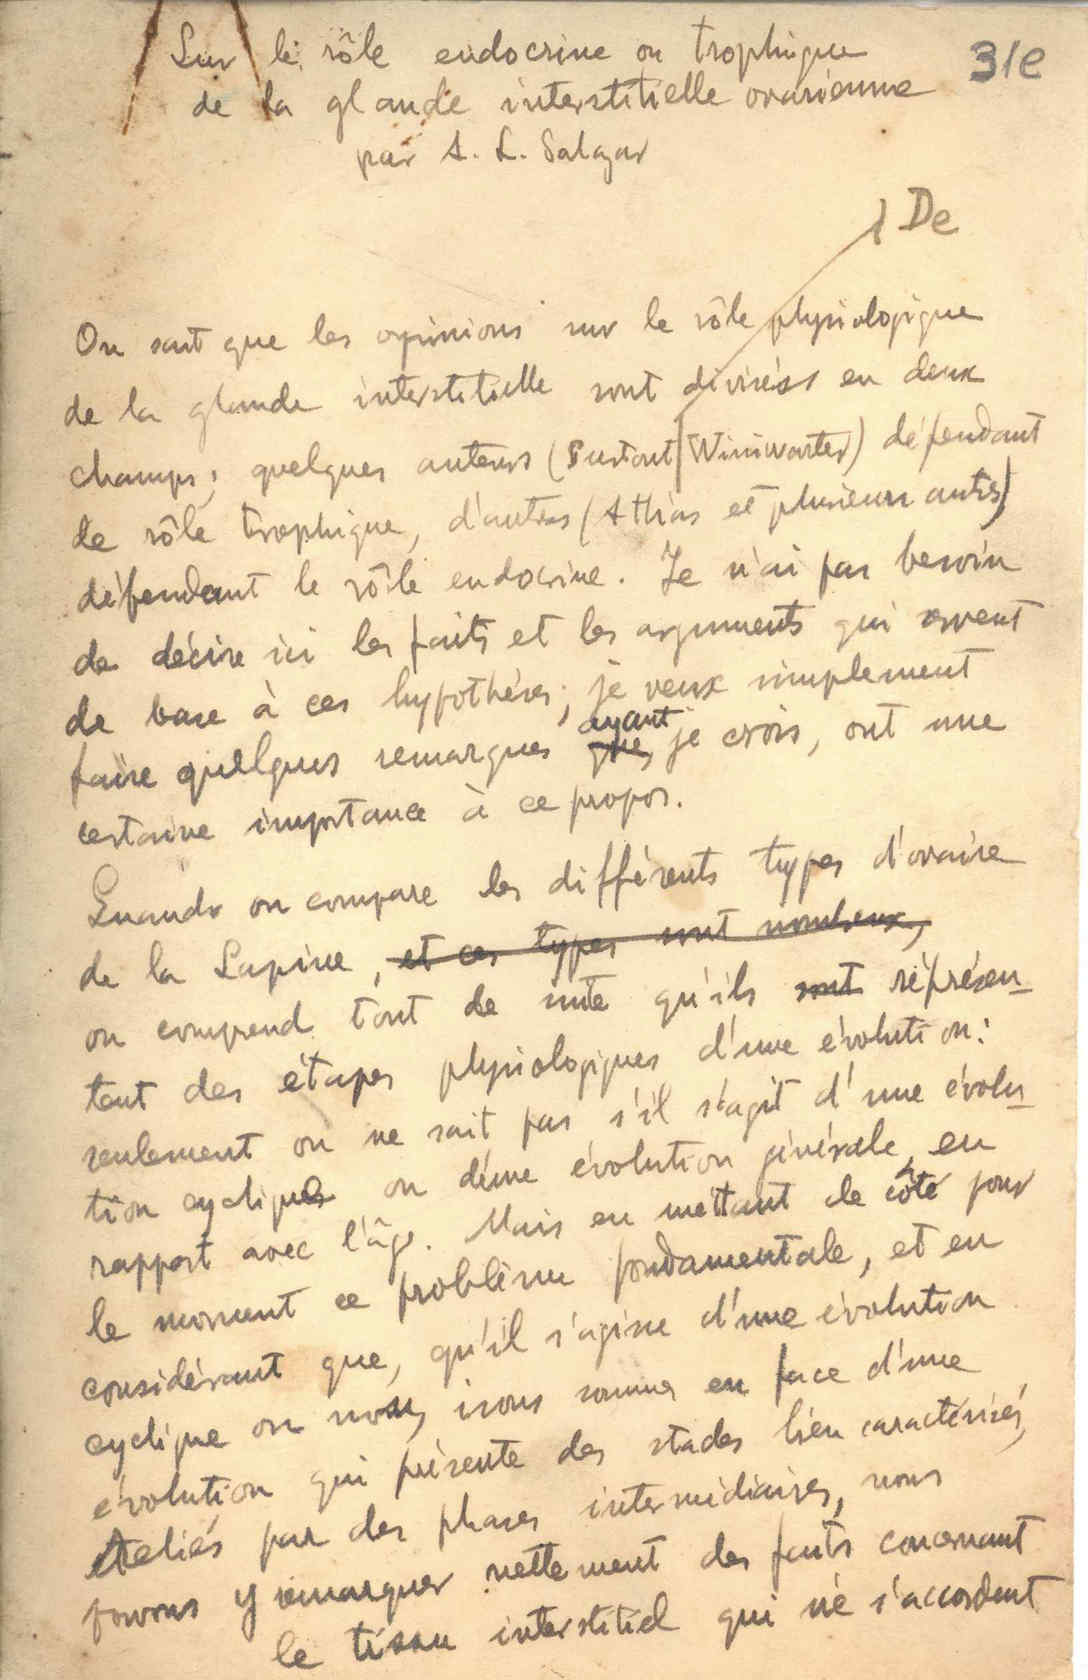 Sur le rôle endocrine ou trophique
31e
de la glande interstitielle ovarienne
par A. L. Salazar
De
On sait que les opinions sur le rôle physiologique
de la glande interstitielle sont divisées en deux
champs; quelques auteurs (Surtout Winiwarter) défendant
le rôle trophique, d'autres (Athias et plusieurs autrs)
défendant le rôle endocrine. Je n'ai pas besoin
de décire ici les faits et les arguments qui servent
de base à ces hypothéses; je veux simplement
faire quelques remarques ayant que, je crois, ont une
certaine importance à ce propos.
Quando on compare les différents types d'ovaire
de la Lapine, et ces types sont nombeux,
on comprend tout de suite qu'ils sont réprésen-
tent des étapes physiologiques d'une évolution:
seulement on ne sait pas s'il s'agit d'une évolu-
tion cyclique ou d'une évolution générale, en
rapport avec l'âge. Mais en mettant de côté pour
le moment ce problème fondamentale, et en
considérant que, qu'il s'agisse d'une évolution
cyclique ou non, nous sommes en face d'une
évolution qui présente des stades bien caractérisés,
reliés par des phases intermédiaires, nous
pouvons y remarquer nettement des faits concernant
le tissu interstitiel qui ne s'accordent